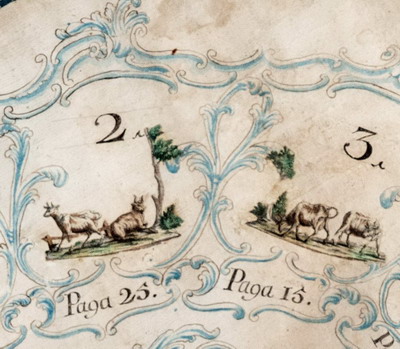 2
Paga 25.
3
Paga 15.